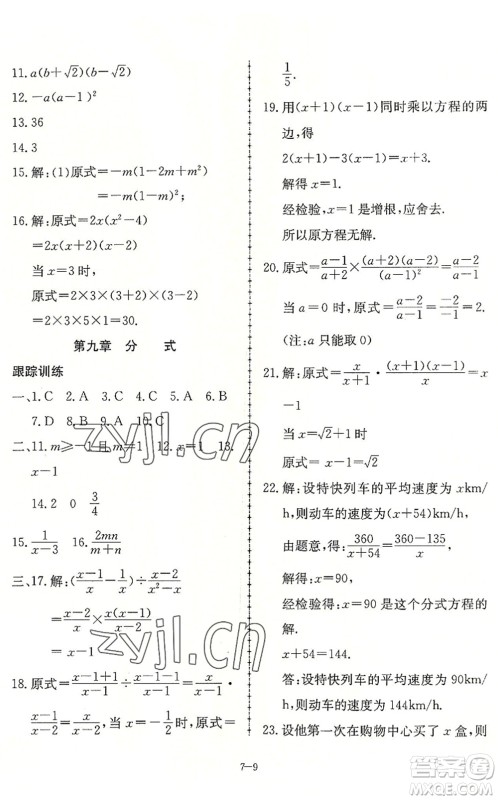 11. a(b+√2)(b-√2)
12. -a(a-1)²
13. 36
14. 3
15. 解:(1)原式=-m(1-2m+m²)
=-m(1-m)²;
16. 解:原式=2x(x²-4)
=2x(x+2)(x-2)
当 x=3 时,
原式=2×3×(3+2)×(3-2)
=2×3×5×1=30.
第九章 分 式
跟踪训练
一、1. C 2. A 3. A 4. C 5. A 6. B
7. D 8. B 9. A 10. C
二、11. m≥-1且 m≠1 12. x=1 13.
x-1
14. 2 0 3/4
15. 1/(x-3) 16. 2mn/(m+n)
三、17. 解:(1/(x-1)-1/x)÷(x-2)/(x²-x)
=(x-2)/x×x(x-1)/(x-2)
18. 原式=(x-1+1)/(x-1)÷(x-1-1)/(x-1)=x/(x-1)·
(x-1)/(x-2)=x/(x-2), 当 x=-1/2 时, 原式=
1/5.
19. 用(x+1)(x-1)同时乘以方程的两
边,得
2(x+1)-3(x-1)=x+3.
解得 x=1.
经检验,x=1 是增根,应舍去.
所以原方程无解.
20. 原式=(a-1)/(a+2)×(a+2)(a-2)/(a-1)²=(a-2)/(a-1)
当 a=0 时,原式=(a-2)/(a-1)=-2/-1=2.
(注:a 只能取 0)
21. 解:原式=x/(x+1)×(x+1)(x-1)/x=
x-1
当 x=√2+1 时
原式=√2
22. 解:设特快列车的平均速度为 xkm/
h,则动车的速度为(x+54)km/h,
由题意,得:360/(x+54)=(360-135)/x,
解得:x=90,
经检验得:x=90 是这个分式方程的
解.
x+54=144.
答:设特快列车的平均速度为 90km/
h,则动车的速度为 144km/h.
23. 设他第一次在购物中心买了 x 盒,则
7—9
zyjl.cn
zyjl.cn
答案圈
MXQE.COM